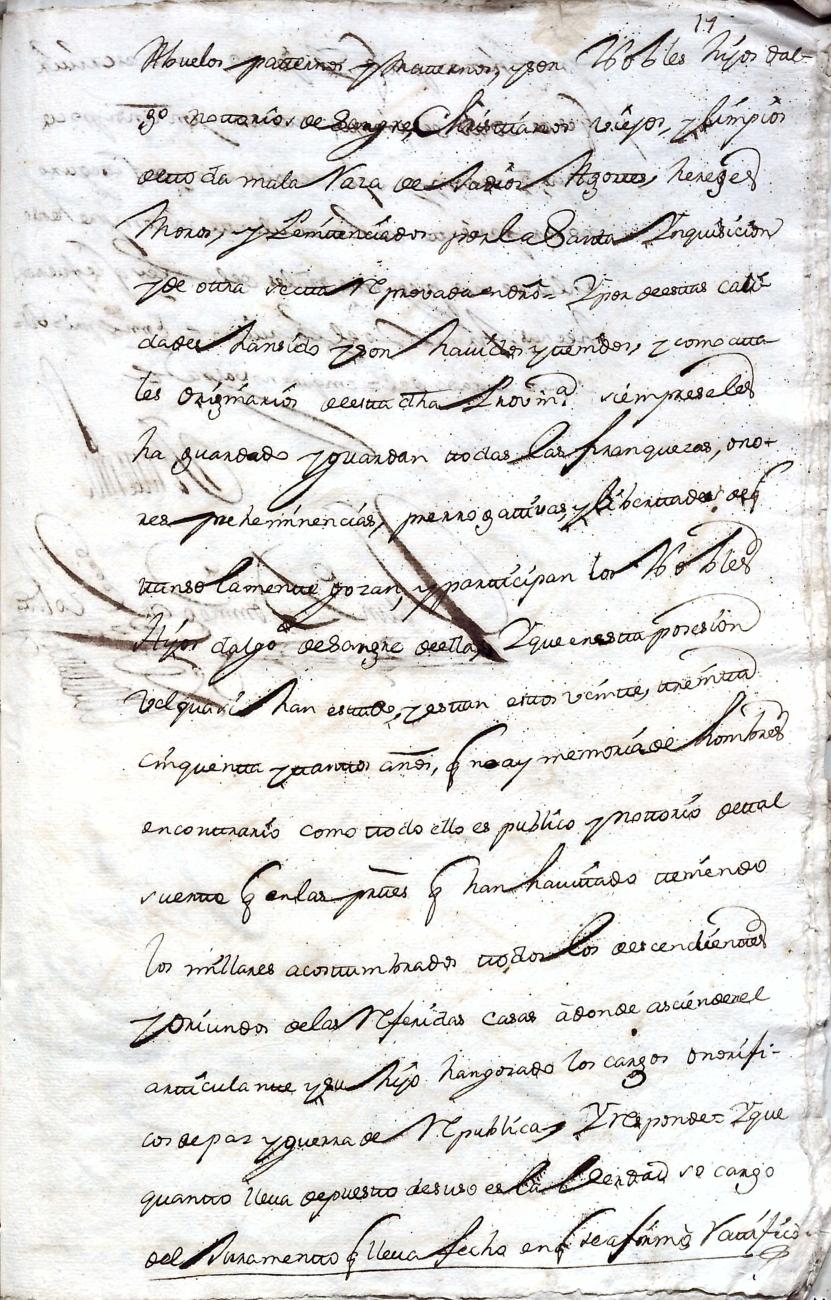 17
Abuelos patternos y Matternos, y son Nobles hijos dal-
go nottorios de Sangre, Christtianos viejos, y limpios
de tto da mala Raza de Judios Agottes, hereges
Moros, y Penittenciados por la Santta Ynquisicion
y de ottra sectta Reprovada en dro = Y por de esttas cali
dades han sido y son havidos y ttenidos, y como a tta
les originarios de estta dha Provinª siempre se les
ha guardado y guardan ttodas las franquezas, ono-
res prehemìnencias, prerrogattivas, y libertades de q
ttan solamentte gozan, y partticipan los Nobles
Hijos dalgo de Sangre de ella, Y que en estta posesion
vel quasi han esttado, y esttan esttos veintte, ttreintta
cinquentta y ttanttos años, q no ay memoria de hombres
en conttrario como ttodo ello es publico y nottorio de ttal
suertte q en las prtes q han havittado tteniendo
los millares acosttumbrados ttodos los descendienttes
y oriundos de las Referidas casas à donde asciende el
artticulantte y su hijo han gozado los cargos onorifi-
cos de paz y guerra de Republica, Y responde = Y que
quantto lleva depuestto de suso es la Verdad so cargo
del Juramentto q lleva fecho en q se afirmò Rattificò